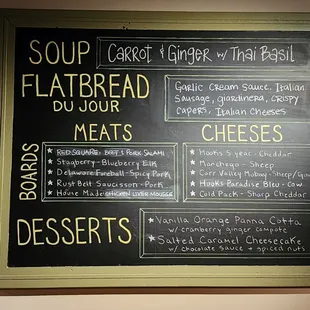 SOUP
CARROT & GINGER W/ THAI BASIL
FLATBREAD
DU JOUR
GARLIC CREAM SAUCE, ITALIAN
SAUSAGE, GIARDINERA, CRISPY
CAPERS, ITALIAN CHEESES
BOARDS
MEATS
★ RED SQUARE - BEEF & PORK SALAMI
★ STAGBERRY - BLUEBERRY ELK
★ DELAWARE FIREBALL - SPICY PORK
★ RUST BELT SAUCISSON - PORK
★ HOUSE MADE CHICKEN LIVER MOUSSE
CHEESES
★ HOOKS 5 YEAR - CHEDDAR
★ MANCHEGO - SHEEP
★ CARR VALLEY MOBAY - SHEEP/
★ HOOKS PARADISE BLEU - COW
★ COLD PACK - SHARP CHEDDAR
DESSERTS
★ VANILLA ORANGE PANNA COTTA
W/ CRANBERRY GINGER COMPOTE
★ SALTED CARAMEL CHEESECAKE
W/ CHOCOLATE SAUCE + SPICED NUTS